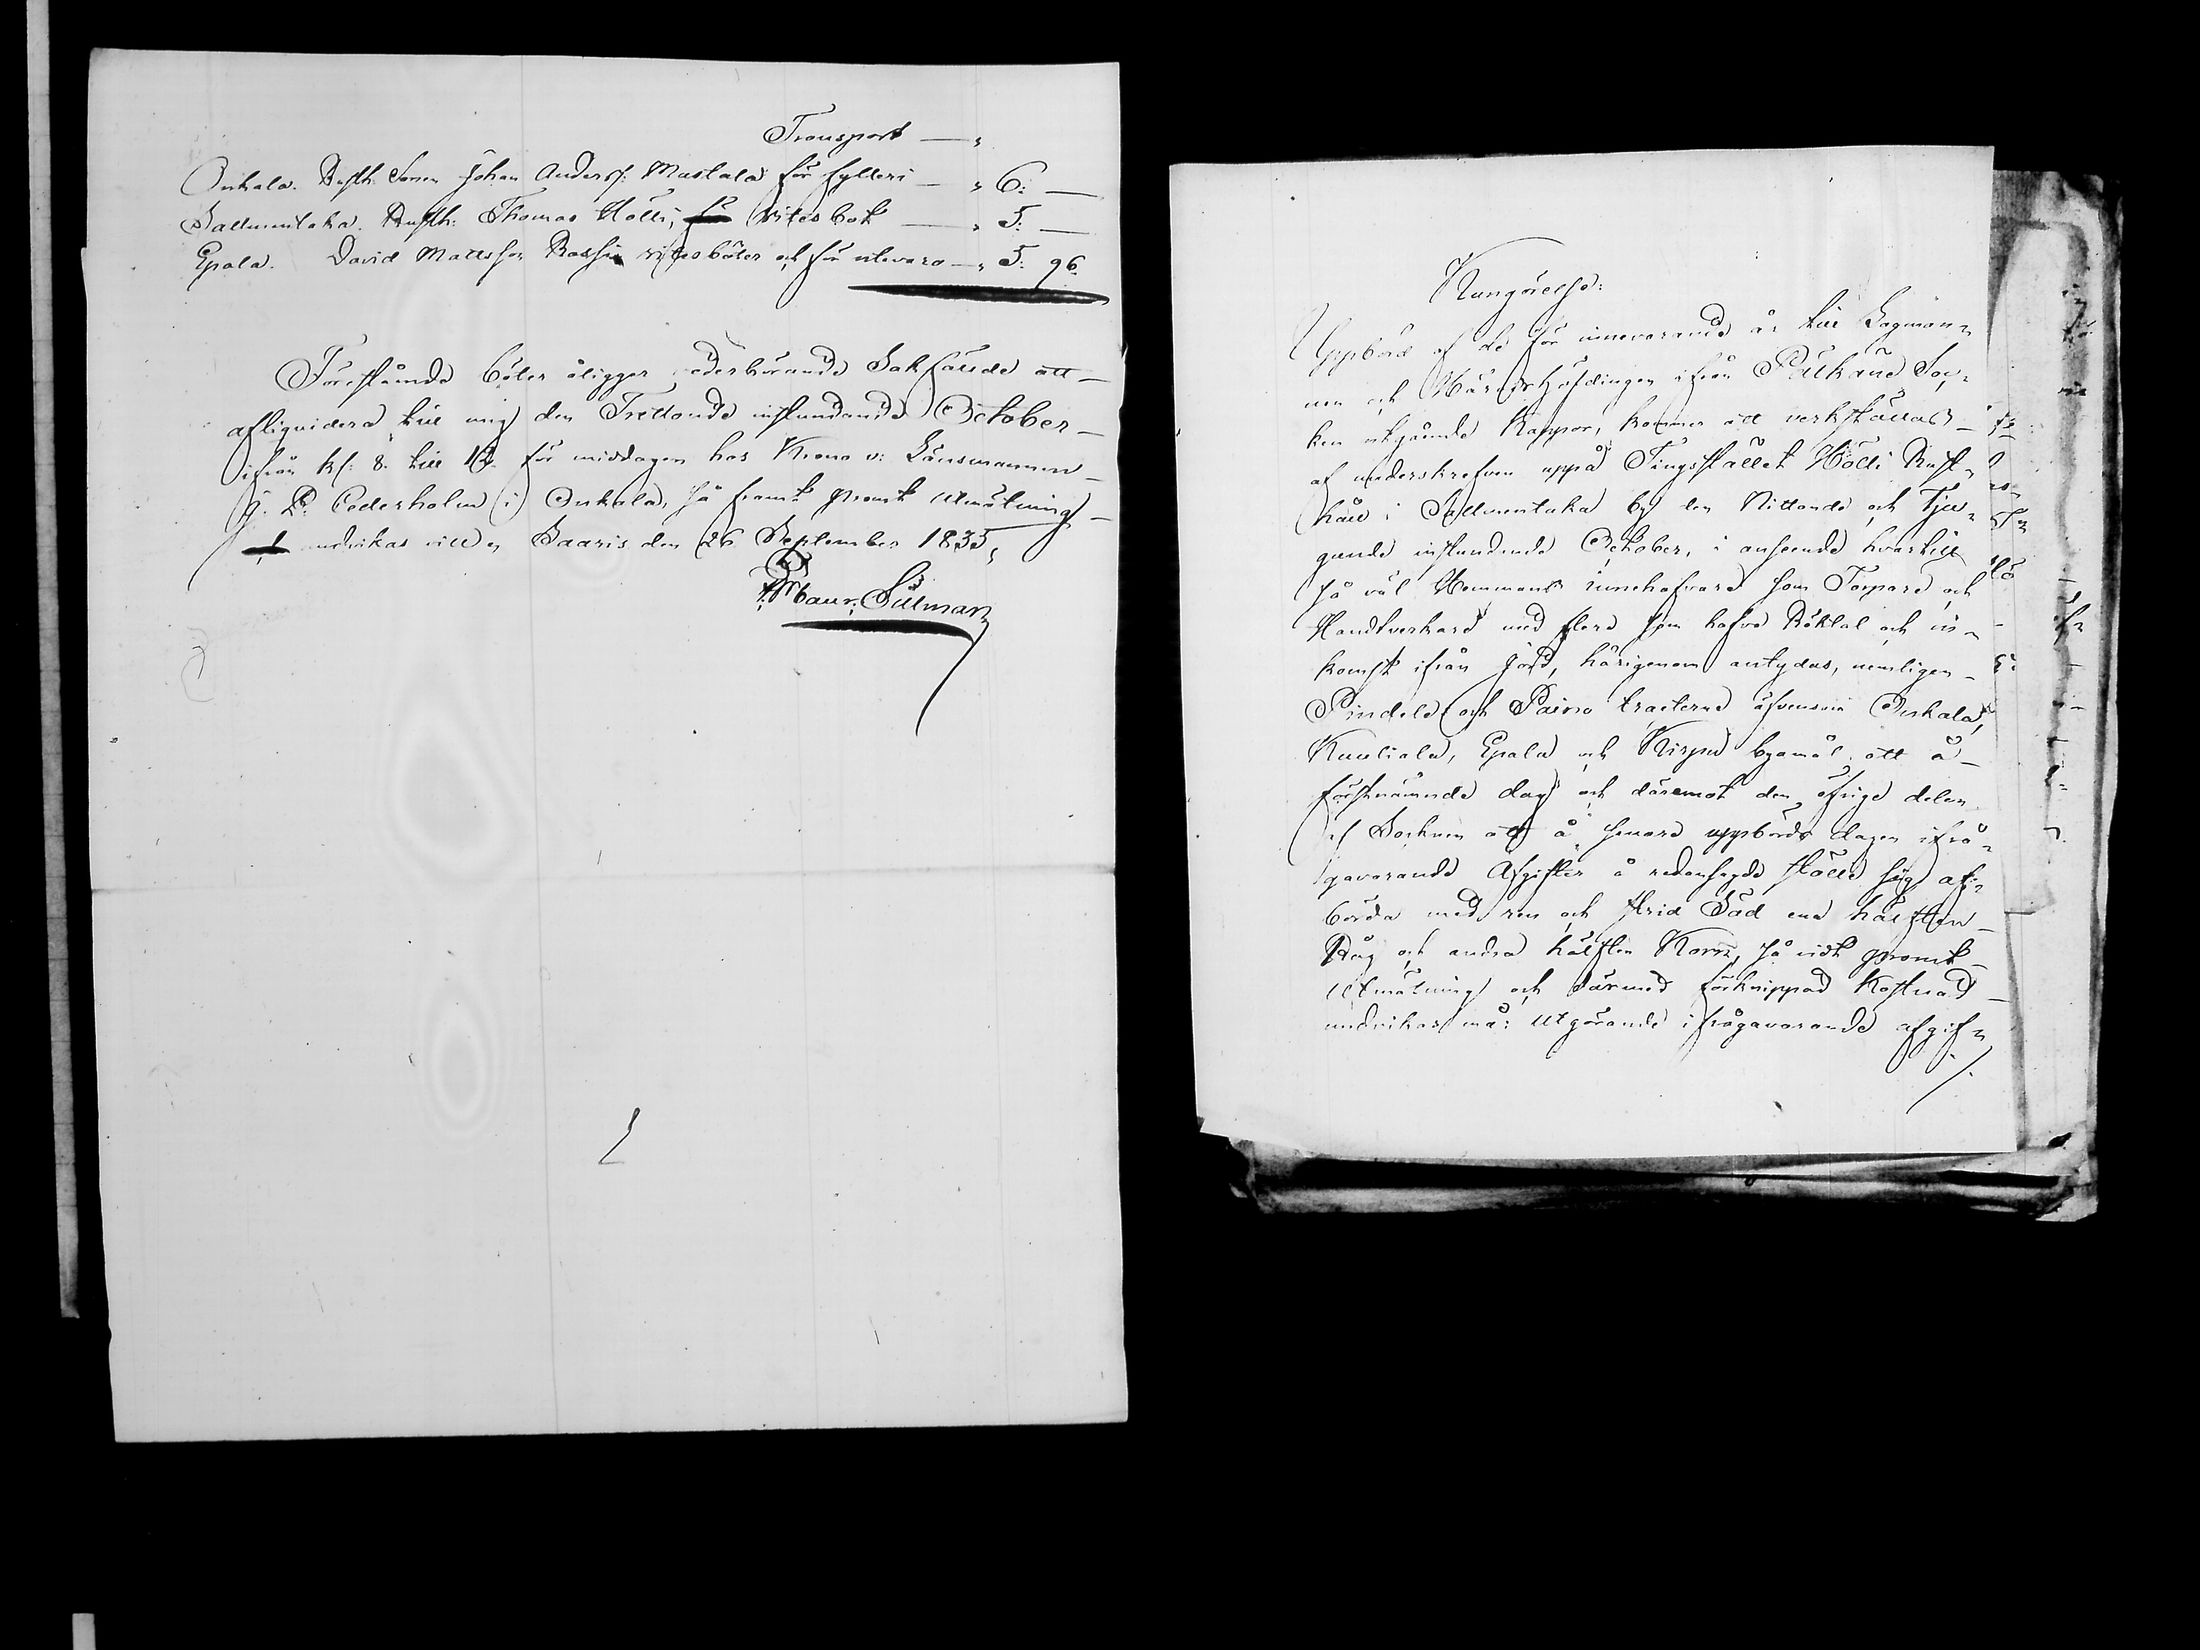 Transport — "
Onkala. Rusth. Sonen Johan Anderss: Mastala för fylleri — " 6: —
Sallmentaka. Rusth: Thomas Hölli, vites bot — " 5: —
Epala. David Mattsson vitesböter och för utevaro — " 5: 96.
Förestående böter åligger vederbörande Sakfällde att
afliquidera till mig den Trettonde instundande October
ifrån Kl: 8. till 12. för middagen hos Krono v: Länsmannen
J. D. Cederholm i Onkala, så framt promt Utmätning
undvikas vill, Saaris den 26 September 1835,
Silman
Kungörelse:
Uppbörd af de för innevarande år till Lagman-
nen och Häradshöfdingen ifrån Pälkäne Soc-
ken utgående Kappor, kommer att verkställas
af underskrefven uppå Tingsstället Hölli Rust-
håll i Sallmentaka by den Nittonde och Tju-
gonde instundande October, i anseende hvartill
så väl Hemmans innehafvare som Torpare och
Handtverkare med flere som hafva Röktal och in-
komst ifrån Jord, härigenom antydas, nemligen
Pindele och Paino tracterne äfvensom Onkala,
Kuuliala, Epala och Kirpu byamål att å
förstnämnde dag och däremot den öfrige delen
af Socknen att å senare uppbörds dagen ifrå-
gavarande Afgifter å redansagde ställe sig af-
börda med ren och strid Säd ena hälften
Råg och andra hälften Korn, så vidt promt
Utmätning och därmed förknippad Kostnad
undvikas må: Utgörande ifrågavarande afgif-
/.